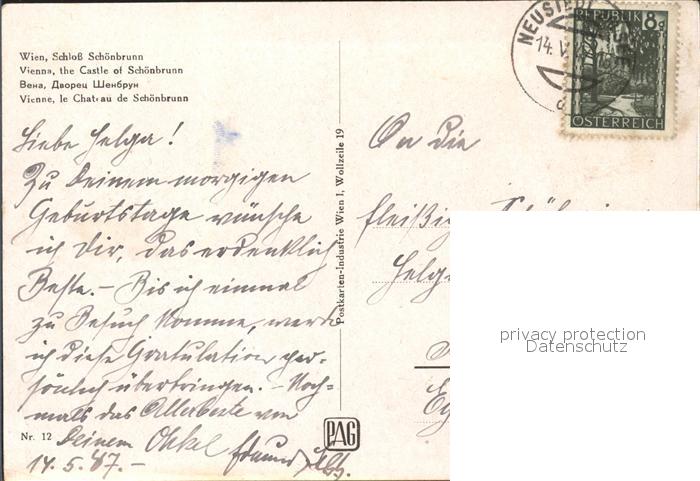 Wien, Schloß Schönbrunn
Vienna, the Castle of Schönbrunn
Вена, Дворец Шенбрун
Vienne, le Chateau de Schönbrunn
Liebe Helga!
Zu Deinem morgigen
Geburtstage wünsche
ich Dir, das erdenklich
Beste.- Bis ich einmal
zu Besuch komme, werde
ich diese Gratulation per-
sönlich überbringen. - Noch-
mals das Allerbeste von
Deinem Onkel
14.5.47.-
Nr. 12
Postkarten-Industrie Wien I, Wollzeile 19
PAG
NEUSIEDL
14. V.
REPUBLIK 8g
ÖSTERREICH
An die
Helga
privacy protection
Datenschutz